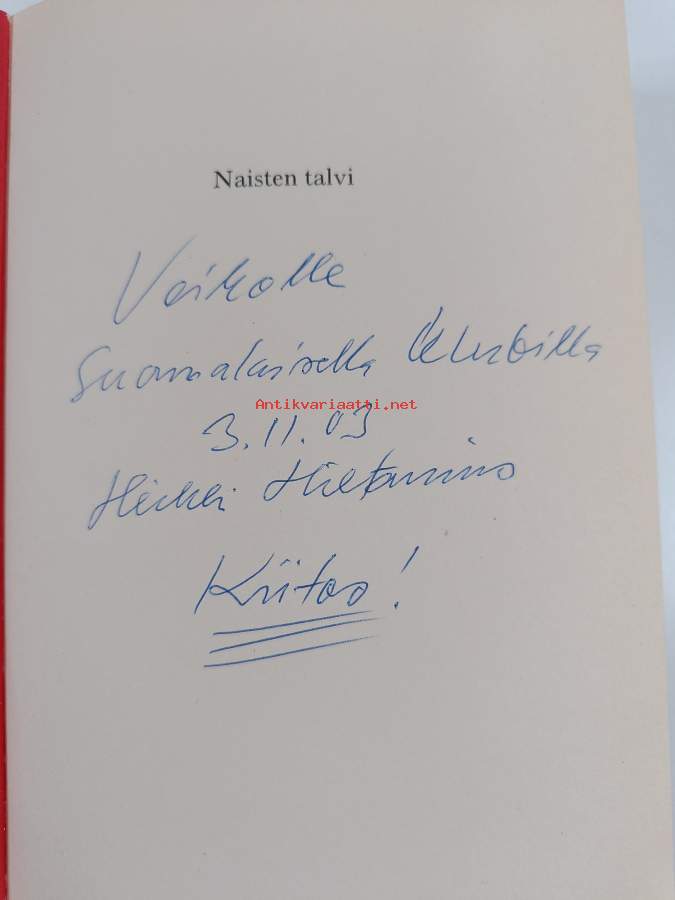 Naisten talvi
Veikolle
Suomalaisella Klubilla
Antikvariaatti.net
3.11.03
Heikki Hietamies
Kiitos!